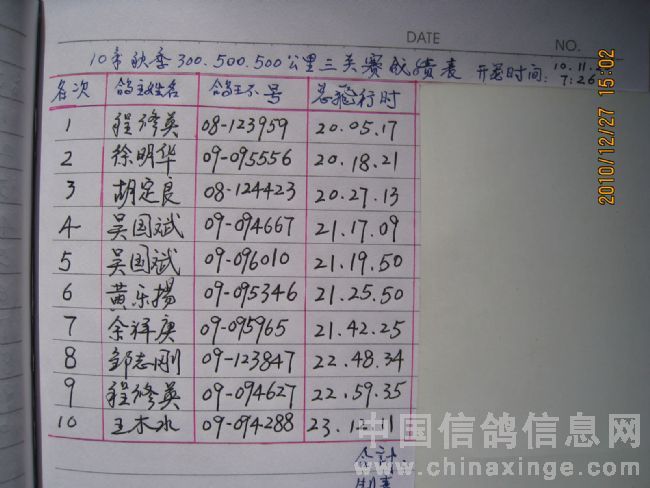 DATE
NO.
10年秋季300.500.500公里三关赛成绩表 开笼时间: 10.11.
7:26
名次 鸽主姓名 鸽环号 总飞行时
1 程修英 08-123959 20.05.17
2 徐明华 09-095556 20.18.21
3 胡定良 08-124423 20.27.13
4 吴国斌 09-094667 21.17.09
5 吴国斌 09-096010 21.19.50
6 黄乐扬 09-095346 21.25.50
7 余祥庚 09-095965 21.42.25
8 邹志刚 09-123847 22.48.34
9 程修英 09-094627 22.59.35
10 王木水 09-094288 23.12.11
会计
制表
2010/12/27 15:02
中国信鸽信息网
www.chinaxinge.com